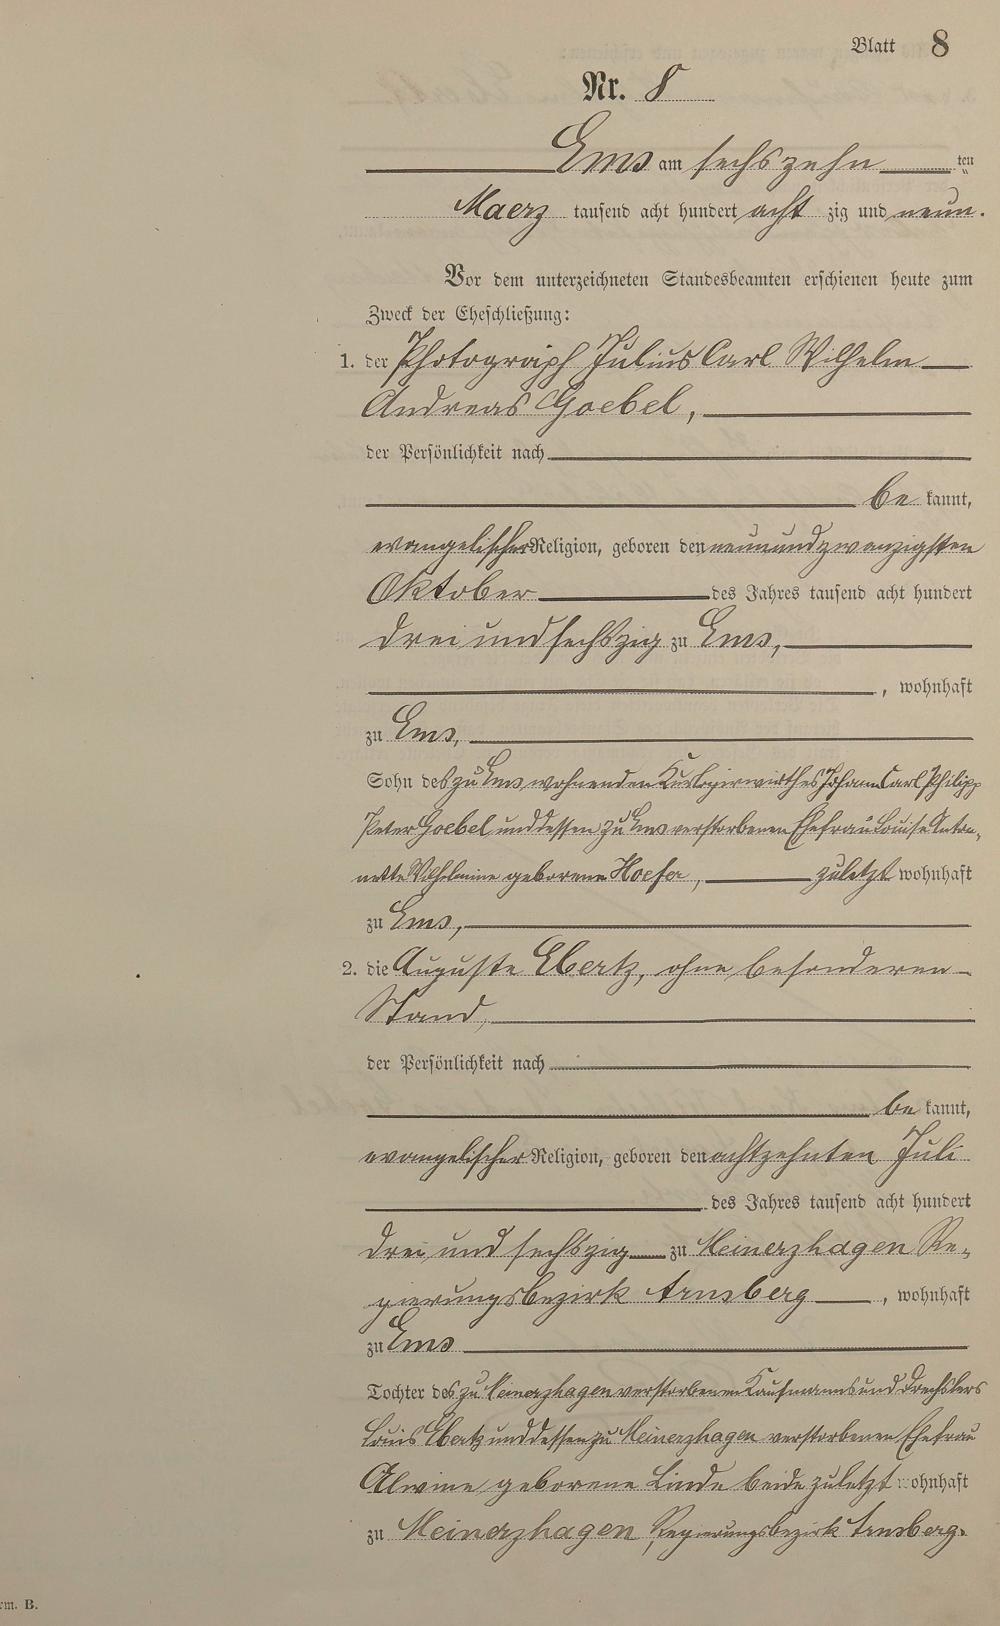 Blatt 8
Nr. 8
Ems am sechszehn ten
Maerz tausend acht hundert acht zig und neun.
Vor dem unterzeichneten Standesbeamten erschienen heute zum
Zweck der Eheschließung:
1. der Photograph Julius Carl Wilhelm
Andreas Goebel,
der Persönlichkeit nach
be kannt,
evangelischer Religion, geboren den neunundzwanzigsten
Oktober des Jahres tausend acht hundert
drei und sechszig zu Ems,
, wohnhaft
zu Ems,
Sohn des zu Ems wohnenden Kurlogirwirthes Johann Carl Philipp
Peter Goebel und dessen zu Ems verstorbenen Ehefrau Louise Anton-
nette Wilhelmine geborene Hoefer, zuletzt wohnhaft
zu Ems,
2. die Auguste Ebertz, ohne besonderen
Stand,
der Persönlichkeit nach
be kannt,
evangelischer Religion, geboren den achtzehnten Juli
des Jahres tausend acht hundert
drei und sechszig zu Meinerzhagen Re-
gierungsbezirk Arnsberg , wohnhaft
zu Ems
Tochter des zu Meinerzhagen verstorbenen Kaufmanns und Drechslers
Louis Ebertz und dessen zu Meinerzhagen verstorbenen Ehefrau
Alwine geborene Linde beide zuletzt wohnhaft
zu Meinerzhagen, Regierungsbezirk Arnsberg.
rm. B.